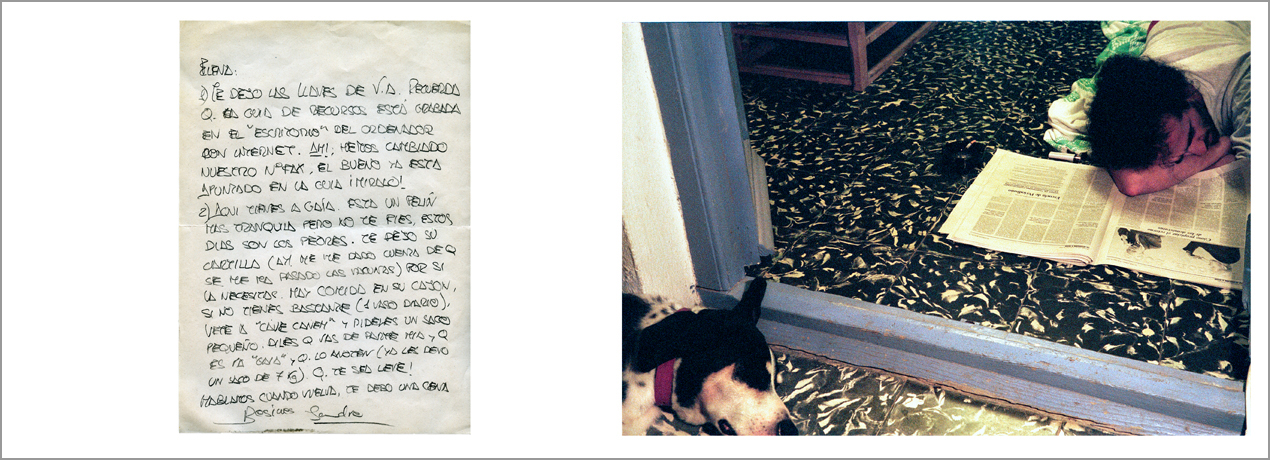 ELENA:
1) TE DEJO LAS LLAVES DE V.A. RECUERDA
Q. LA GUIA DE RECURSOS ESTÁ GRABADA
EN EL "ESCRITORIO" DEL ORDENADOR
CON INTERNET. AH!, HEMOS CAMBIADO
NUESTRO Nº FAX, EL BUENO YA ESTA
APUNTADO EN LA GUIA ¡MIRALO!
2) AQUI TIENES A GAÍA. ESTA UN PELIÑ
MAS TRANQUILA PERO NO TE FIES, ESTOS
DIAS SON LOS PEORES. TE DEJO SU
CARTILLA (AH, ME HE DADO CUENTA DE Q
SE ME HA PASADO LAS VACUNAS) POR SI
LA NECESITAS. HAY COMIDA EN SU CAJON,
SI NO TIENES BASTANTE (1 VASO DIARIO),
VETE A "CAVE CANEM" Y PIDELES UN SACO
PEQUEÑO. DILES Q VAS DE PARTE MIA Y Q
ES PA "GAIA" Y Q. LO ANOTEN (YA LES DEBO
UN SACO DE 7 Kg). Q. TE SEA LEVE!
HABLAMOS CUANDO VUELVA, TE DEBO UNA CENA
Besicos Sandra